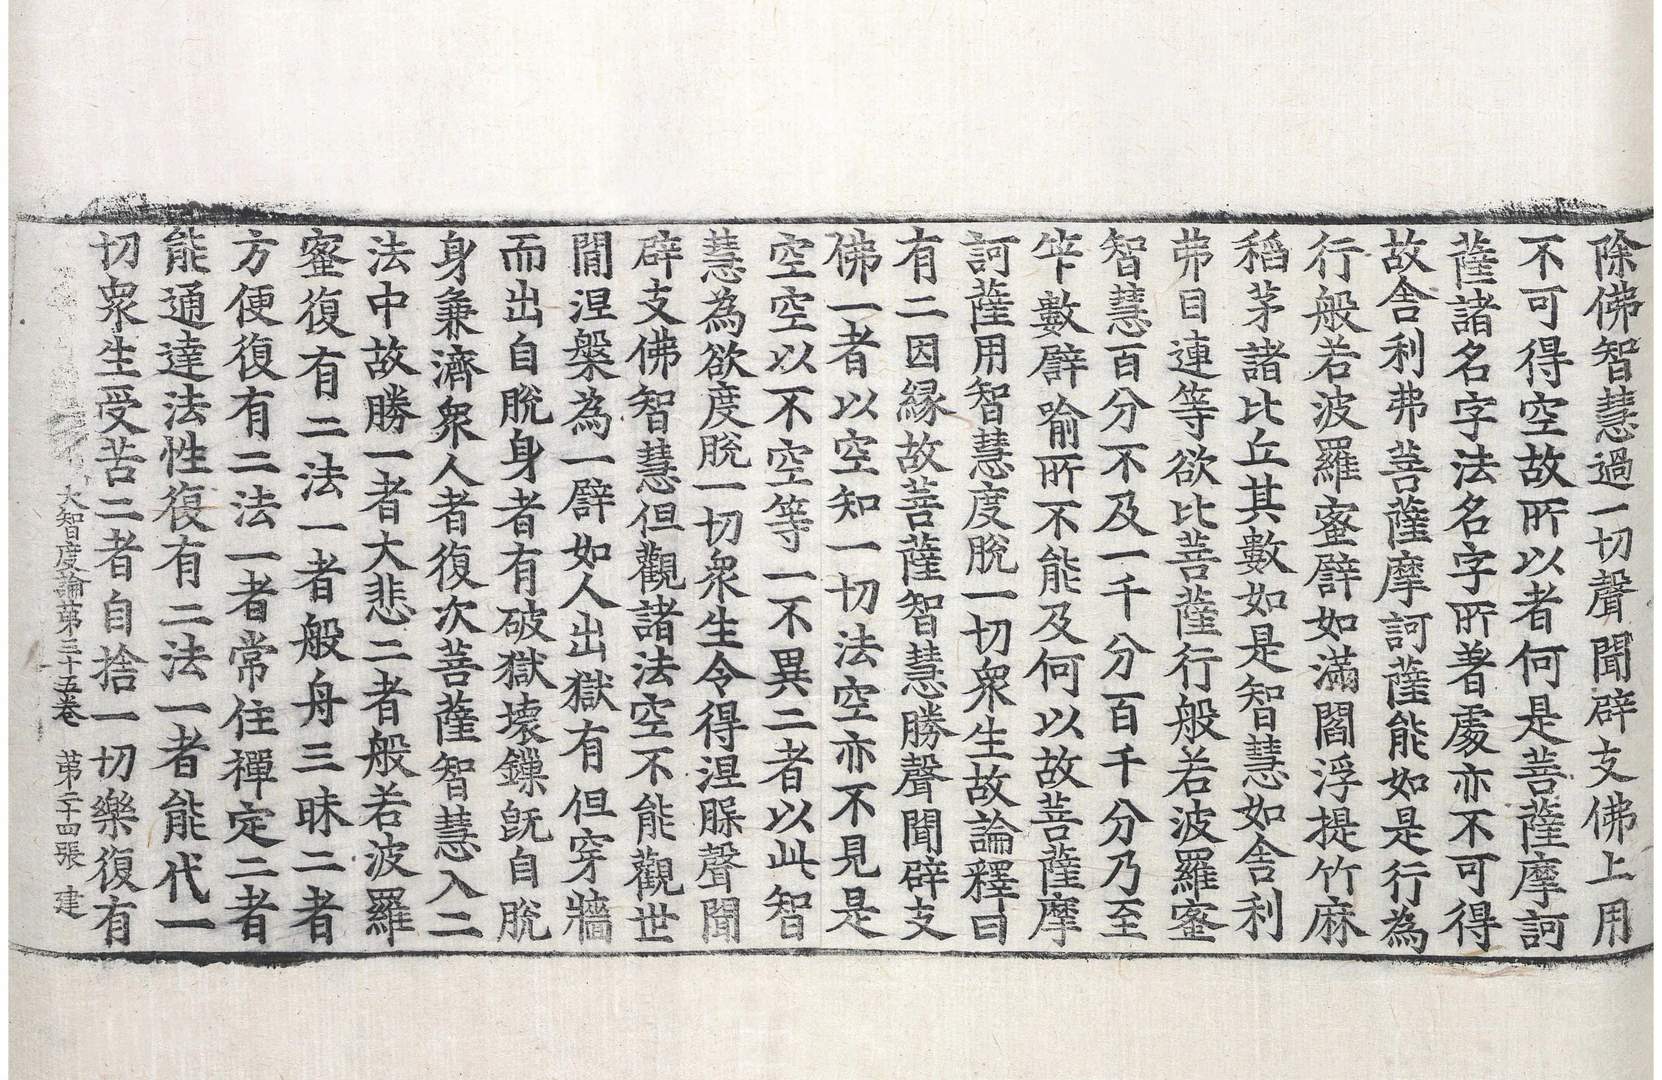 除佛智慧過一切聲聞辟支佛上用
不可得空故所以者何是菩薩摩訶
薩諸名字法名字所著處亦不可得
故舍利弗菩薩摩訶薩能如是行為
行般若波羅蜜譬如滿閻浮提竹麻
稻茅諸比丘其數如是智慧如舍利
弗目連等欲比菩薩行般若波羅蜜
智慧百分不及一千分百千分乃至
笇數譬喻所不能及何以故菩薩摩
訶薩用智慧度脫一切衆生故論釋曰
有二因緣故菩薩智慧勝聲聞辟支
佛一者以空知一切法空亦不見是
空空以不空空等一不異二者以此智
慧為欲度脫一切衆生令得涅槃聲聞
辟支佛智慧但觀諸法空不能觀世
間涅槃為一譬如人出獄有但穿牆
而出自脫身者有破獄壞鏁旣自脫
身兼濟衆人者復次菩薩智慧入二
法中故勝一者大悲二者般若波羅
蜜復有二法一者般舟三昧二者
方便復有二法一者常住禪定二者
能通達法性復有二法一者能代一
切衆生受苦二者自捨一切樂復有
大智度論第三十五卷 第二十四張 建